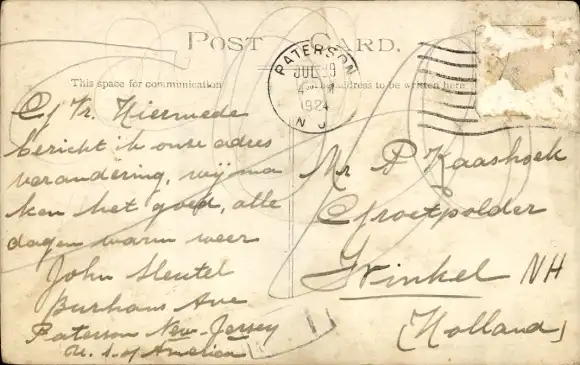 POST CARD.
This space for communication
address to be written here
PATERSON
JUL 29
1924
N J
Gr. Vr. Hiermede
bericht ik onze adres
verandering, wij ma
ken het goed, alle
dagen warm weer
John Sleutel
Burhans Ave
Paterson New-Jersey
U. S. of America
Mr P Kaashoek
Groetpolder
Winkel NH
(Holland)